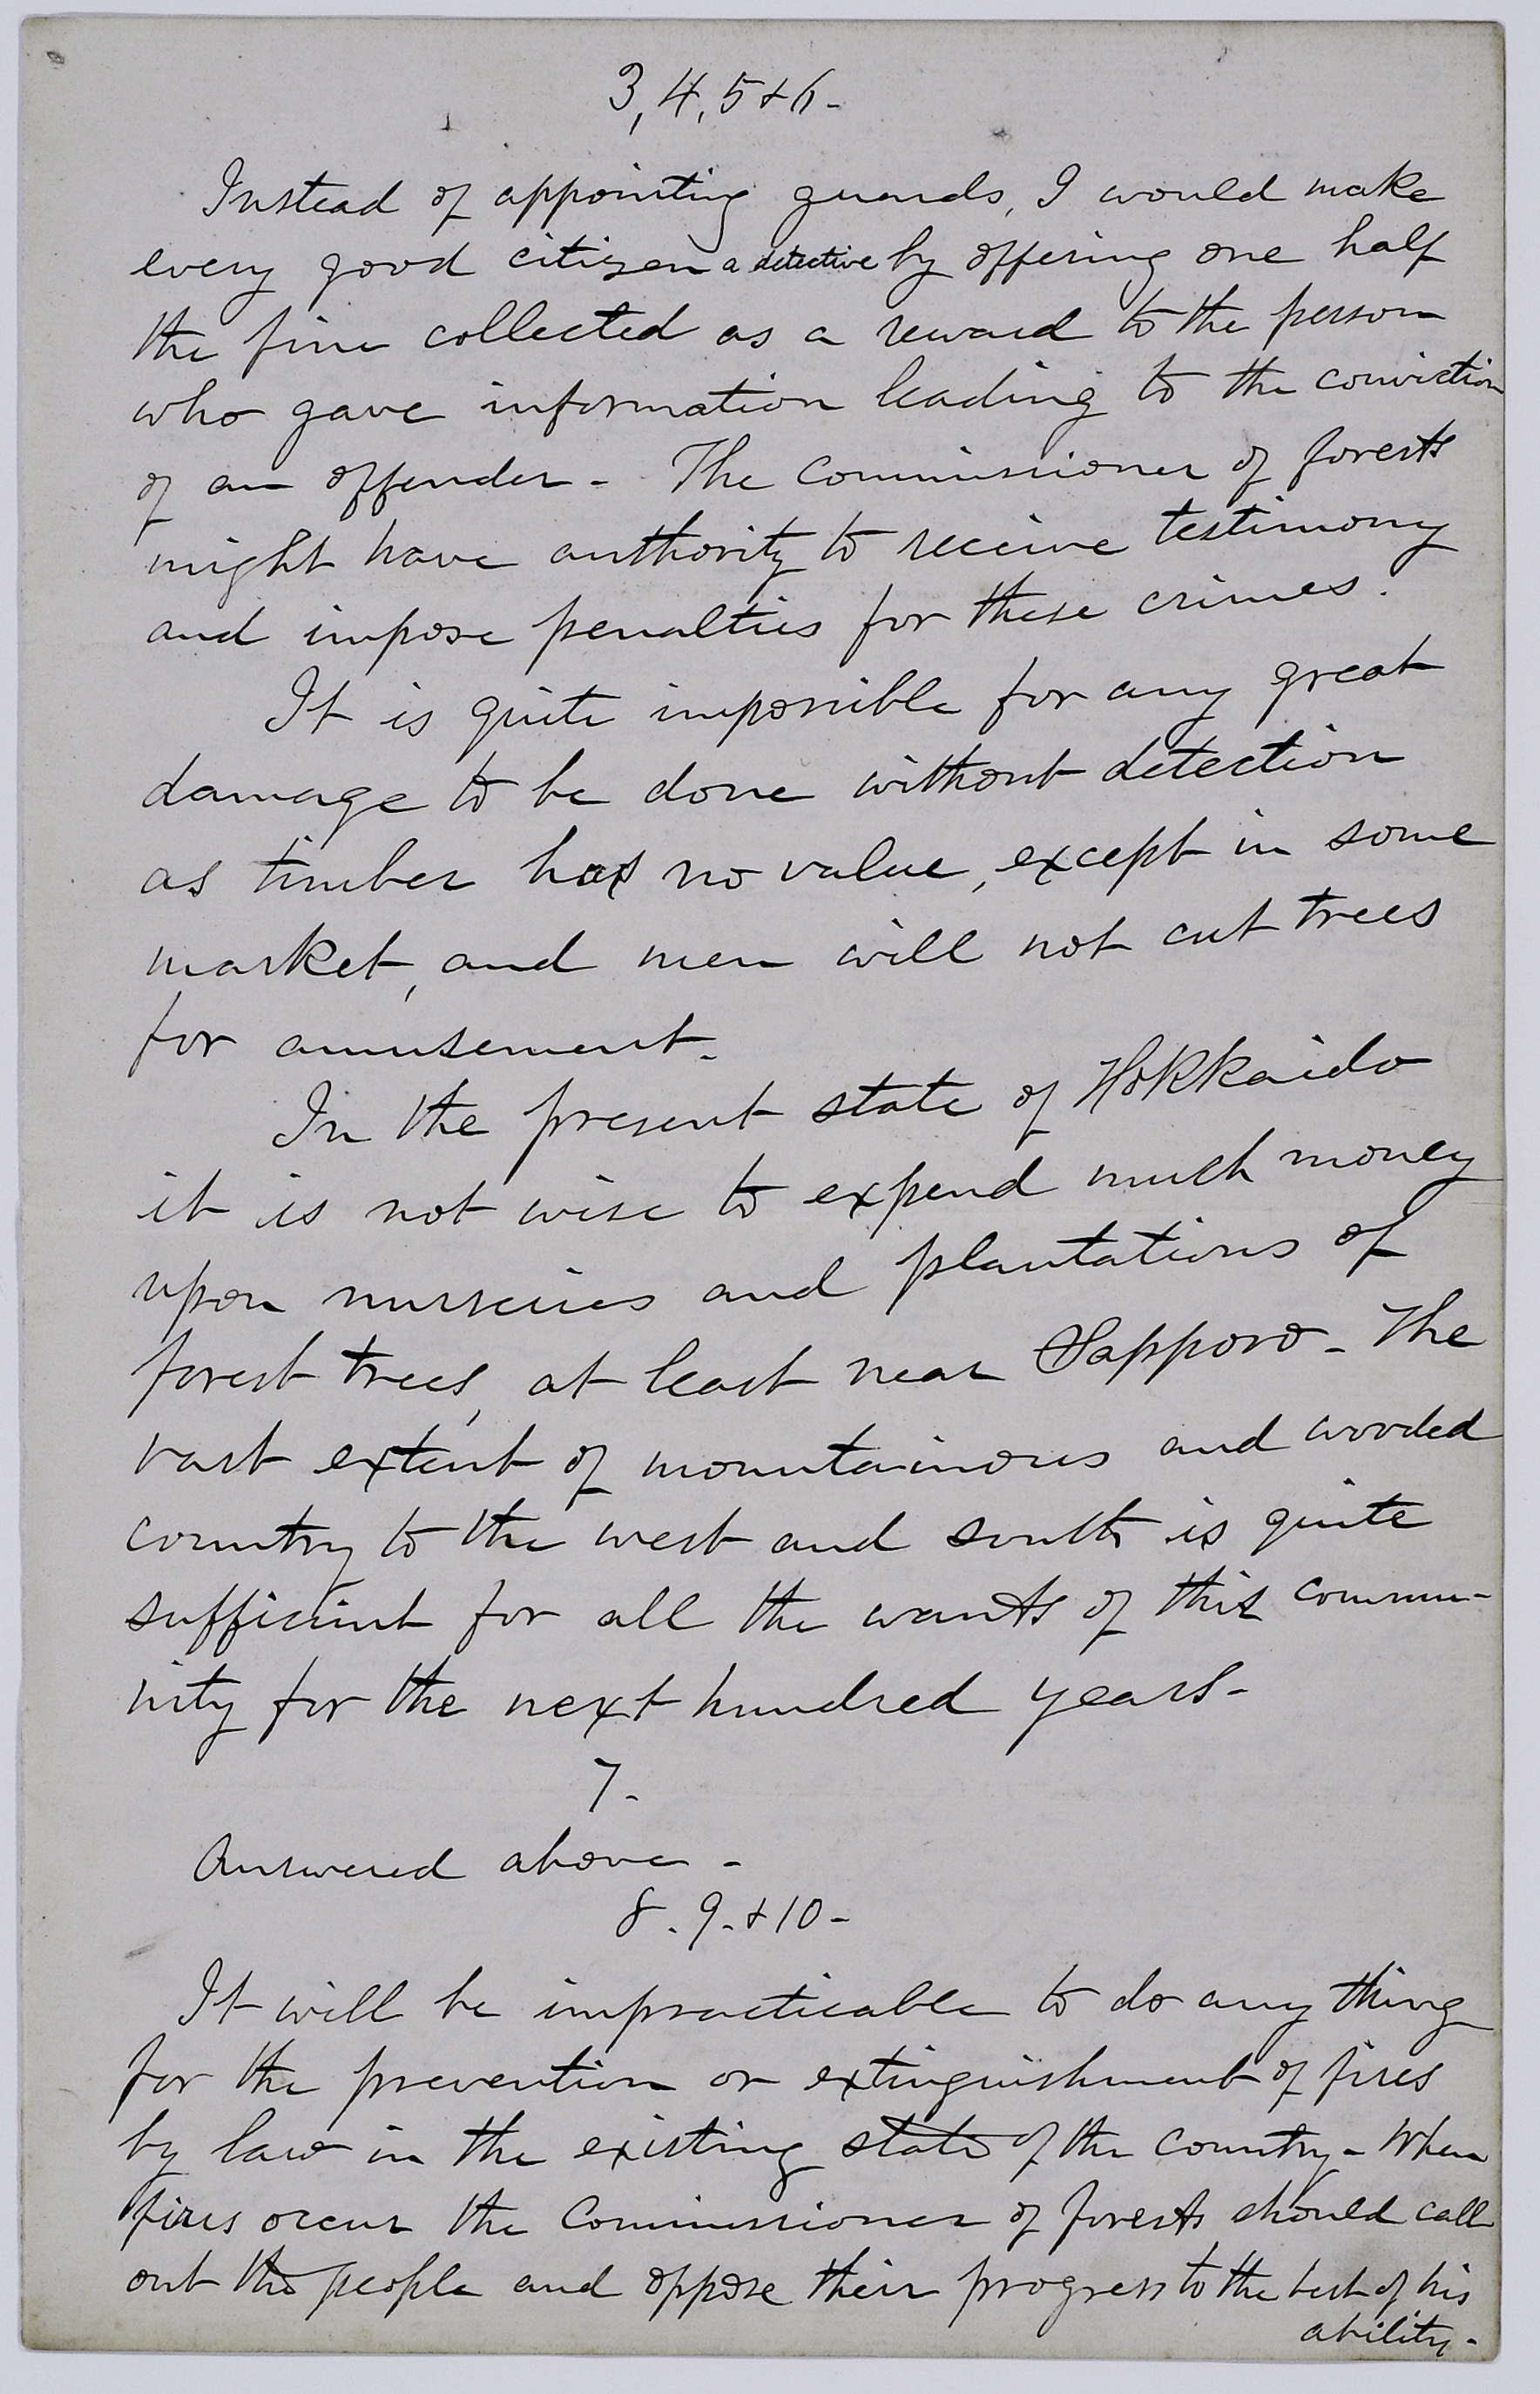 3, 4, 5 & 6-
Instead of appointing guards, I would make
every good citizen a detective by offering one half
the fine collected as a reward to the person
who gave information leading to the conviction
of an offender - The Commissioner of forests
might have authority to receive testimony
and impose penalties for these crimes.
It is quite impossible for any great
damage to be done without detection
as timber has no value, except in some
market, and men will not cut trees
for amusement.
In the present state of Hokkaido
it is not wise to expend much money
upon nurseries and plantations of
forest trees, at least near Sapporo - The
vast extent of mountainous and wooded
country to the west and south is quite
sufficient for all the wants of this commu-
nity for the next hundred years-
7-
Answered above -
8. 9. & 10-
It will be impracticable to do any thing
for the prevention or extinguishment of fires
by law in the existing state of the country - When
fires occur the Commissioner of forests should call
out the people and oppose their progress to the best of his
ability-